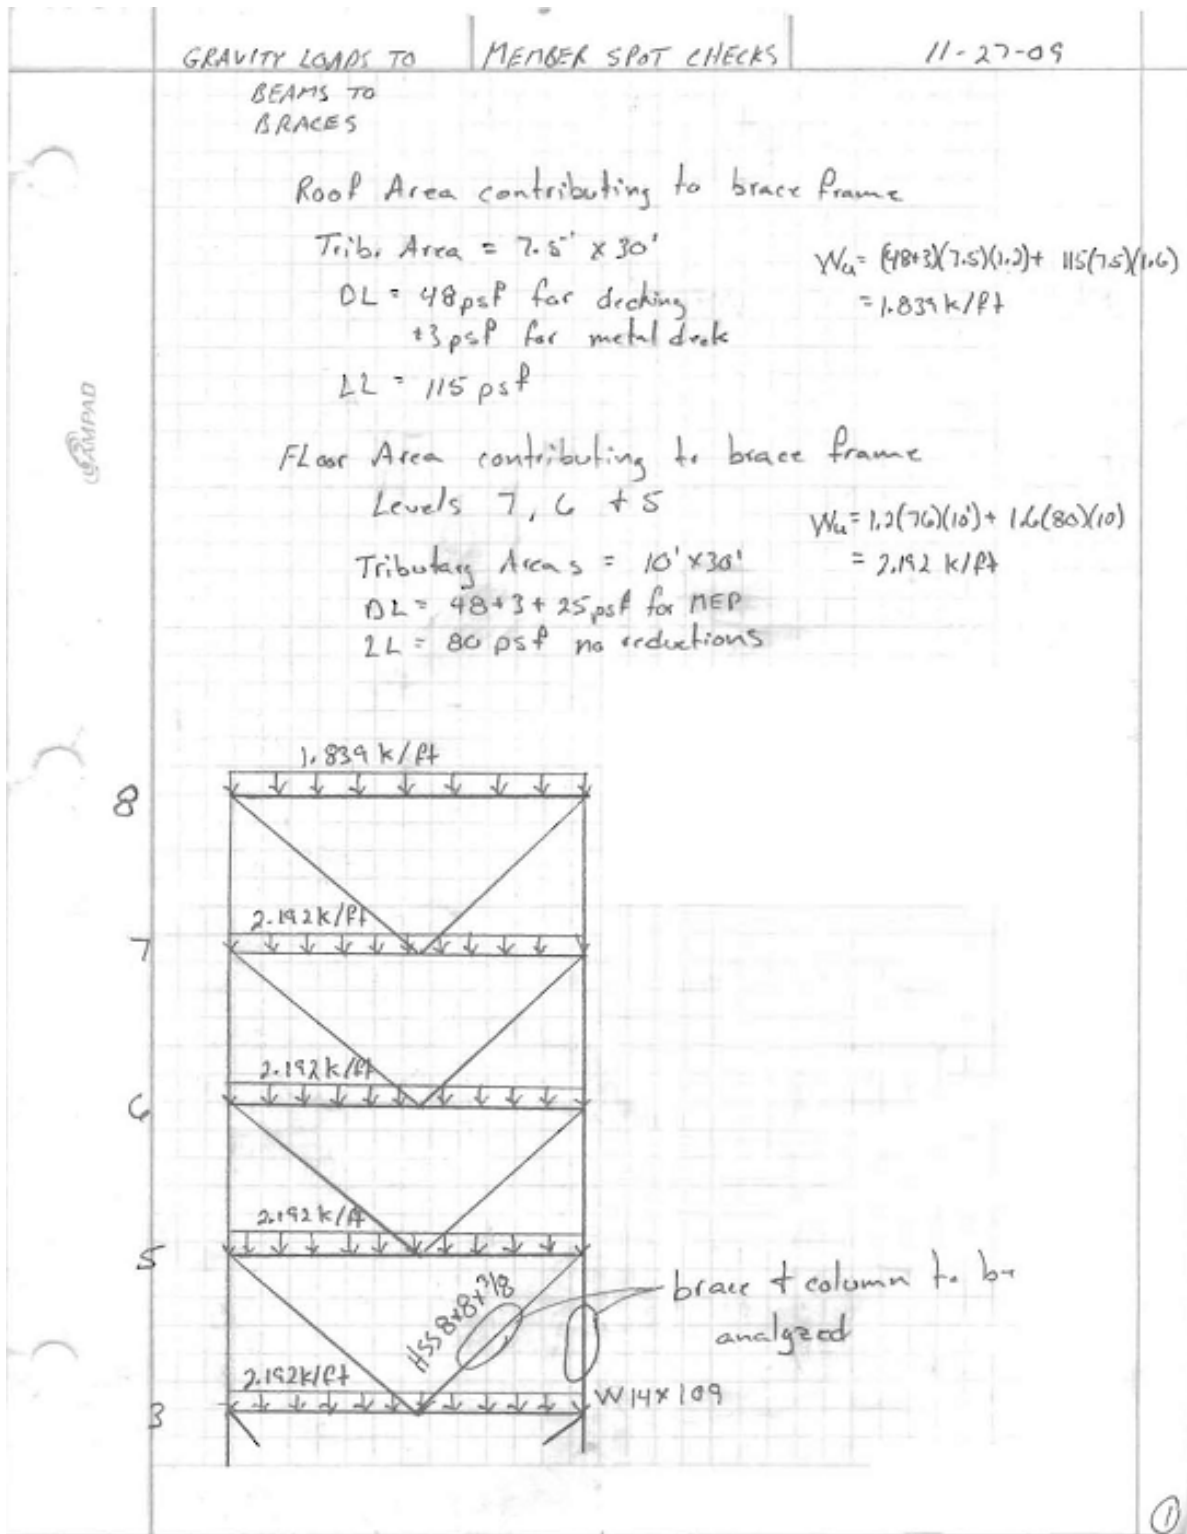 GRAVITY LOADS TO BEAMS TO BRACES
MEMBER SPOT CHECKS
11-27-09
Roof Area contributing to brace frame
Trib. Area = 7.5' x 30'
DL = 48 psf for decking
+3 psf for metal deck
LL = 115 psf
Wu = (48+3)(7.5)(1.2) + 115(7.5)(1.6)
= 1.839 k/ft
Floor Area contributing to brace frame
Levels 7, 6 + 5
Tributary Areas = 10' x 30'
DL = 48+3+25 psf for MEP
LL = 80 psf no reductions
Wu = 1.2(76)(10') + 1.6(80)(10)
= 2.192 k/ft
AMPAD
1.839 k/ft
8
2.192 k/ft
7
2.192 k/ft
6
2.192 k/ft
5
HSS 8x8x3/8
brace + column to be
analyzed
2.192 k/ft
W14x109
3
1